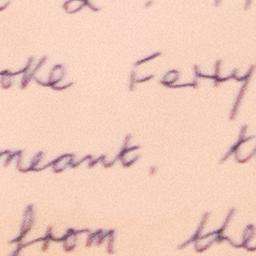 oke Ferry
meant.
from the